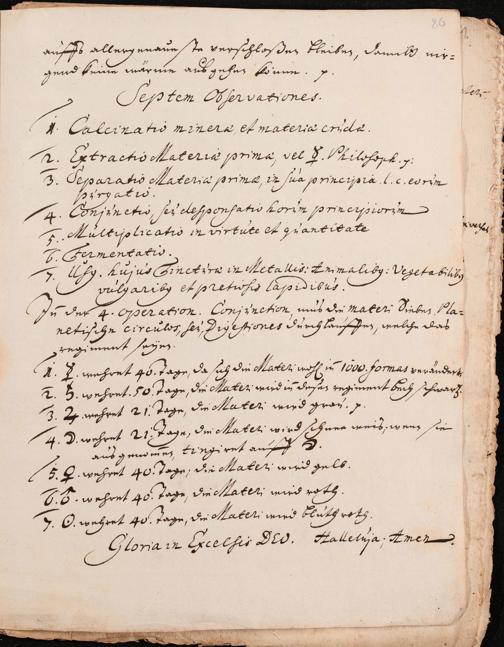 86
auffs allergenaueste verschloßen bleiben, damit nir-
gend keine wärme ausgehen könne. p.
Septem Observationes.
1. Calcinatio mineræ et materiæ crudæ.
2. Extractio Materiæ primæ, vel ☿. Philosoph. p.
3. Separatio Materiæ primæ, in sua principia l. c. eorum
purgatio.
4. Conjunctio, seu desponsatio horum principiorum
5. Multiplicatio in virtute et quantitate
6. Fermentatio.
7. Usq. hujus Tincturæ in Metallis: Animalibq: Vegetabilibq
vulgaribq et pretiosis lapidibus.
In der 4. operation. Conjunction, mus die materi Sieben Pla-
netische circulos, seu Digestiones durchlauffen, welche das
regiment
1. ☿. wehret 40. Tage, da sich die Materi wohl in 1000. formas verändert.
2. ♄. wehret. 50. Tage, die Materi wird in diesen regiment schwartz.
3. ♃. wehret 21. Tage, die Materi wird grau. p.
4. ☽. wehret 21. Tage, die Materi wird schnee weis, wen sie
ausgenomen, tingiret auff ☽.
5. ♀. wehret 40. Tage, die Materi wird gelb.
6. ♂. wehret 40. Tage, die Materi wird roth.
7. ☉. wehret 40. Tage, die Materi wird bluth roth.
Gloria in Excelsis DEO. Halleluja; Amen.